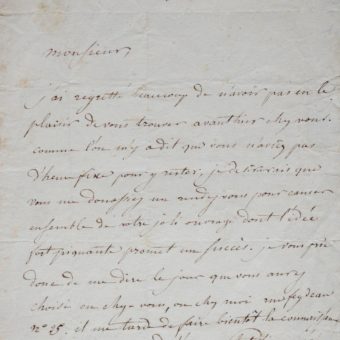 monsieur,
j'ai regretté beaucoup de n'avoir pas eu le
plaisir de vous trouver avanthier chez vous.
comme l'on m'y a dit que vous n'aviez pas
d'heure fixe pour y rester, je desirerais que
vous me donassiez un rendezvous pour causer
ensemble de votre joli ouvrage dont l'idée
fort piquante promet un succès. je vous prie
donc de me dire le jour que vous aurez
choisi ou chez vous, ou chez moi rue feydeau
n° 25. il me tarde de faire bientôt la connaissance